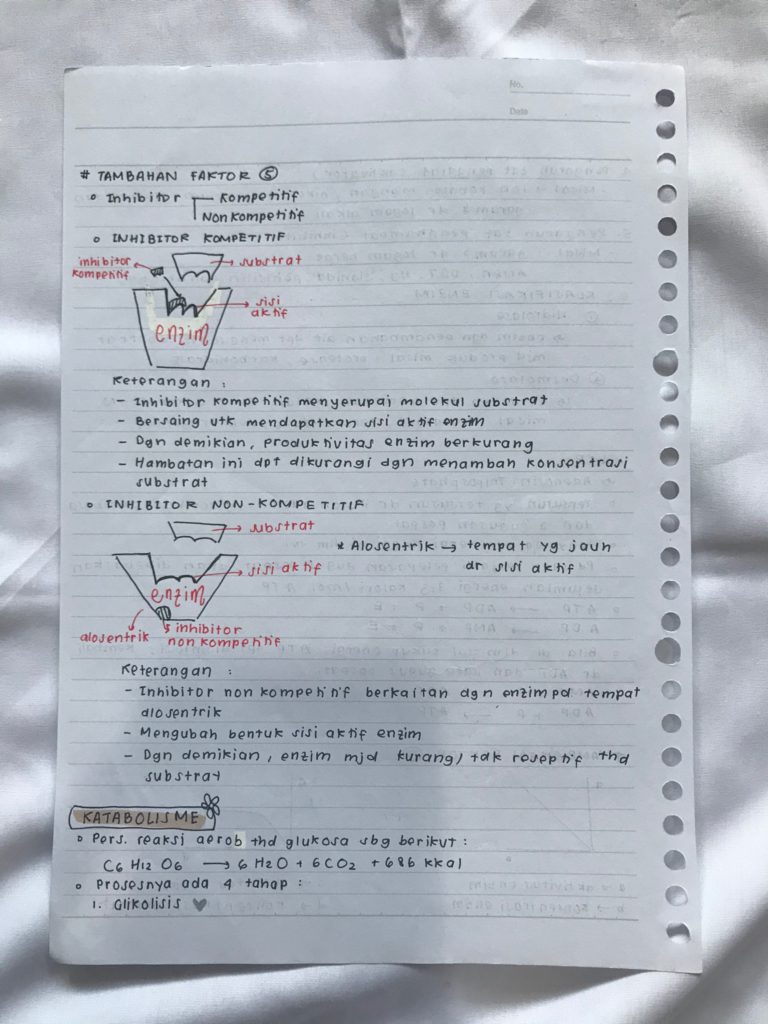 No.
Date
# TAMBAHAN FAKTOR ⑤
o Inhibitor Kompetitif
Non Kompetitif
o INHIBITOR KOMPETITIF
inhibitor kompetitif
substrat
sisi aktif
enzim
Keterangan :
- Inhibitor kompetitif menyerupai molekul substrat
- Bersaing utk mendapatkan sisi aktif enzim
- Dgn demikian, produktivitas enzim berkurang
- Hambatan ini dpt dikurangi dgn menambah konsentrasi
substrat
o INHIBITOR NON-KOMPETITIF
substrat
* Alosentrik → tempat yg jauh
dr sisi aktif
sisi aktif
enzim
alosentrik
inhibitor
non kompetitif
Keterangan :
- Inhibitor non kompetitif berkaitan dgn enzim pd tempat
alosentrik
- Mengubah bentuk sisi aktif enzim
- Dgn demikian, enzim mjd kurang/tak reseptif thd
substrat
KATABOLISME
o Pers. reaksi aerob thd glukosa sbg berikut :
C6 H12 O6 → 6 H2O + 6 CO2 + 686 kkal
o Prosesnya ada 4 tahap :
1. Glikolisis ♥